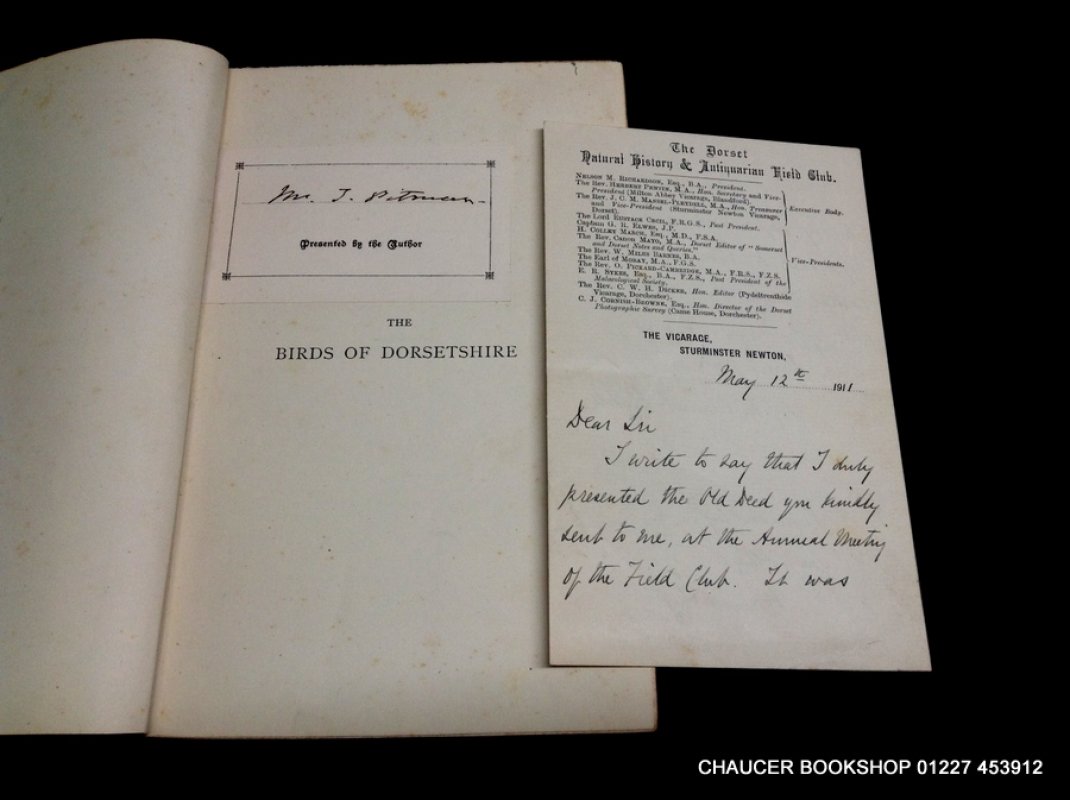 Mr. J. Pitman
Presented by the Author
THE
BIRDS OF DORSETSHIRE
The Dorset
Natural History & Antiquarian Field Club.
NELSON M. RICHARDSON, Esq., B.A., President.
The Rev. HERBERT PENTIN, M.A., Hon. Secretary and Vice-
President (Milton Abbey Vicarage, Blandford).
The Rev. J. C. M. MANSEL-PLEYDELL, M.A., Hon. Treasurer
and Vice-President (Sturminster Newton Vicarage,
Dorset).
Executive Body.
The Lord EUSTACE CECIL, F.R.G.S., Past President.
Captain G. R. ELWES, J.P.
H. COLLEY MARCH, Esq., M.D., F.S.A.
The Rev. Canon MAYO, M.A., Dorset Editor of "Somerset
and Dorset Notes and Queries."
The Rev. W. MILES BARNES, B.A.
The Earl of MORAY, M.A., F.G.S.
The Rev. O. PICKARD-CAMBRIDGE, M.A., F.R.S., F.Z.S.
E. R. SYKES, Esq., B.A., F.Z.S., Past President of the
Malacological Society.
The Rev. C. W. H. DICKER, Hon. Editor (Pydeltrenthide
Vicarage, Dorchester).
C. J. CORNISH-BROWNE, Esq., Hon. Director of the Dorset
Photographic Survey (Came House, Dorchester).
Vice-Presidents.
THE VICARAGE,
STURMINSTER NEWTON,
May 12th 1911
Dear Sir
I write to say that I duly
presented the Old Deed you kindly
sent to me, at the Annual Meeting
of the Field Club. It was
CHAUCER BOOKSHOP 01227 453912